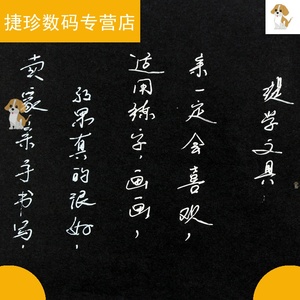 捷珍数码专营店
提学文具
亲一定会喜欢，
适用练字，画画，
效果真的很好，
卖家亲手书写，